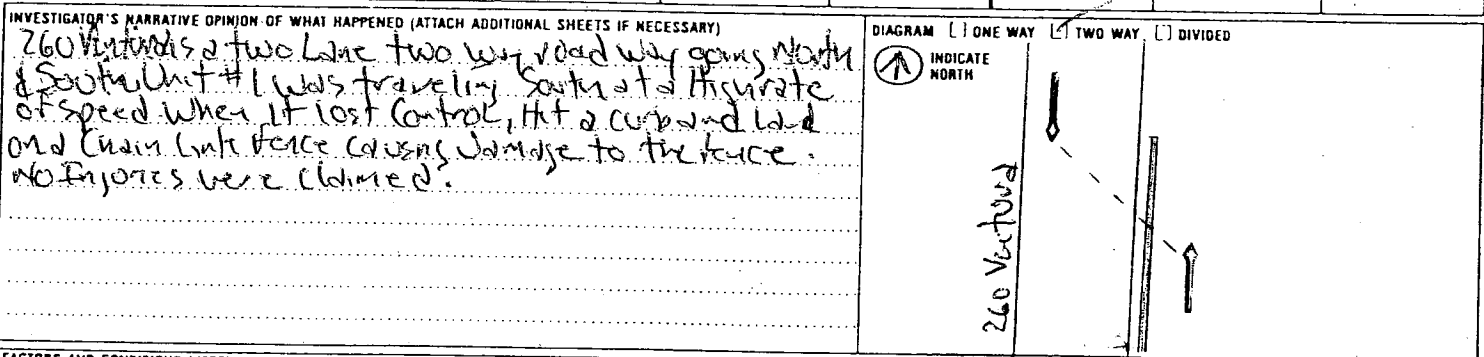 INVESTIGATOR'S NARRATIVE OPINION OF WHAT HAPPENED (ATTACH ADDITIONAL SHEETS IF NECESSARY)
260 Ventura is a two Lane two way road way going North
& South Unit #1 was traveling South at a High rate
of speed when It lost Control, Hit a curb and Land
on a Chain Link Fence causing Damage to the fence.
No Injories were Claimed.
DIAGRAM [ ] ONE WAY [✓] TWO WAY [ ] DIVIDED
INDICATE
NORTH
260 Ventura